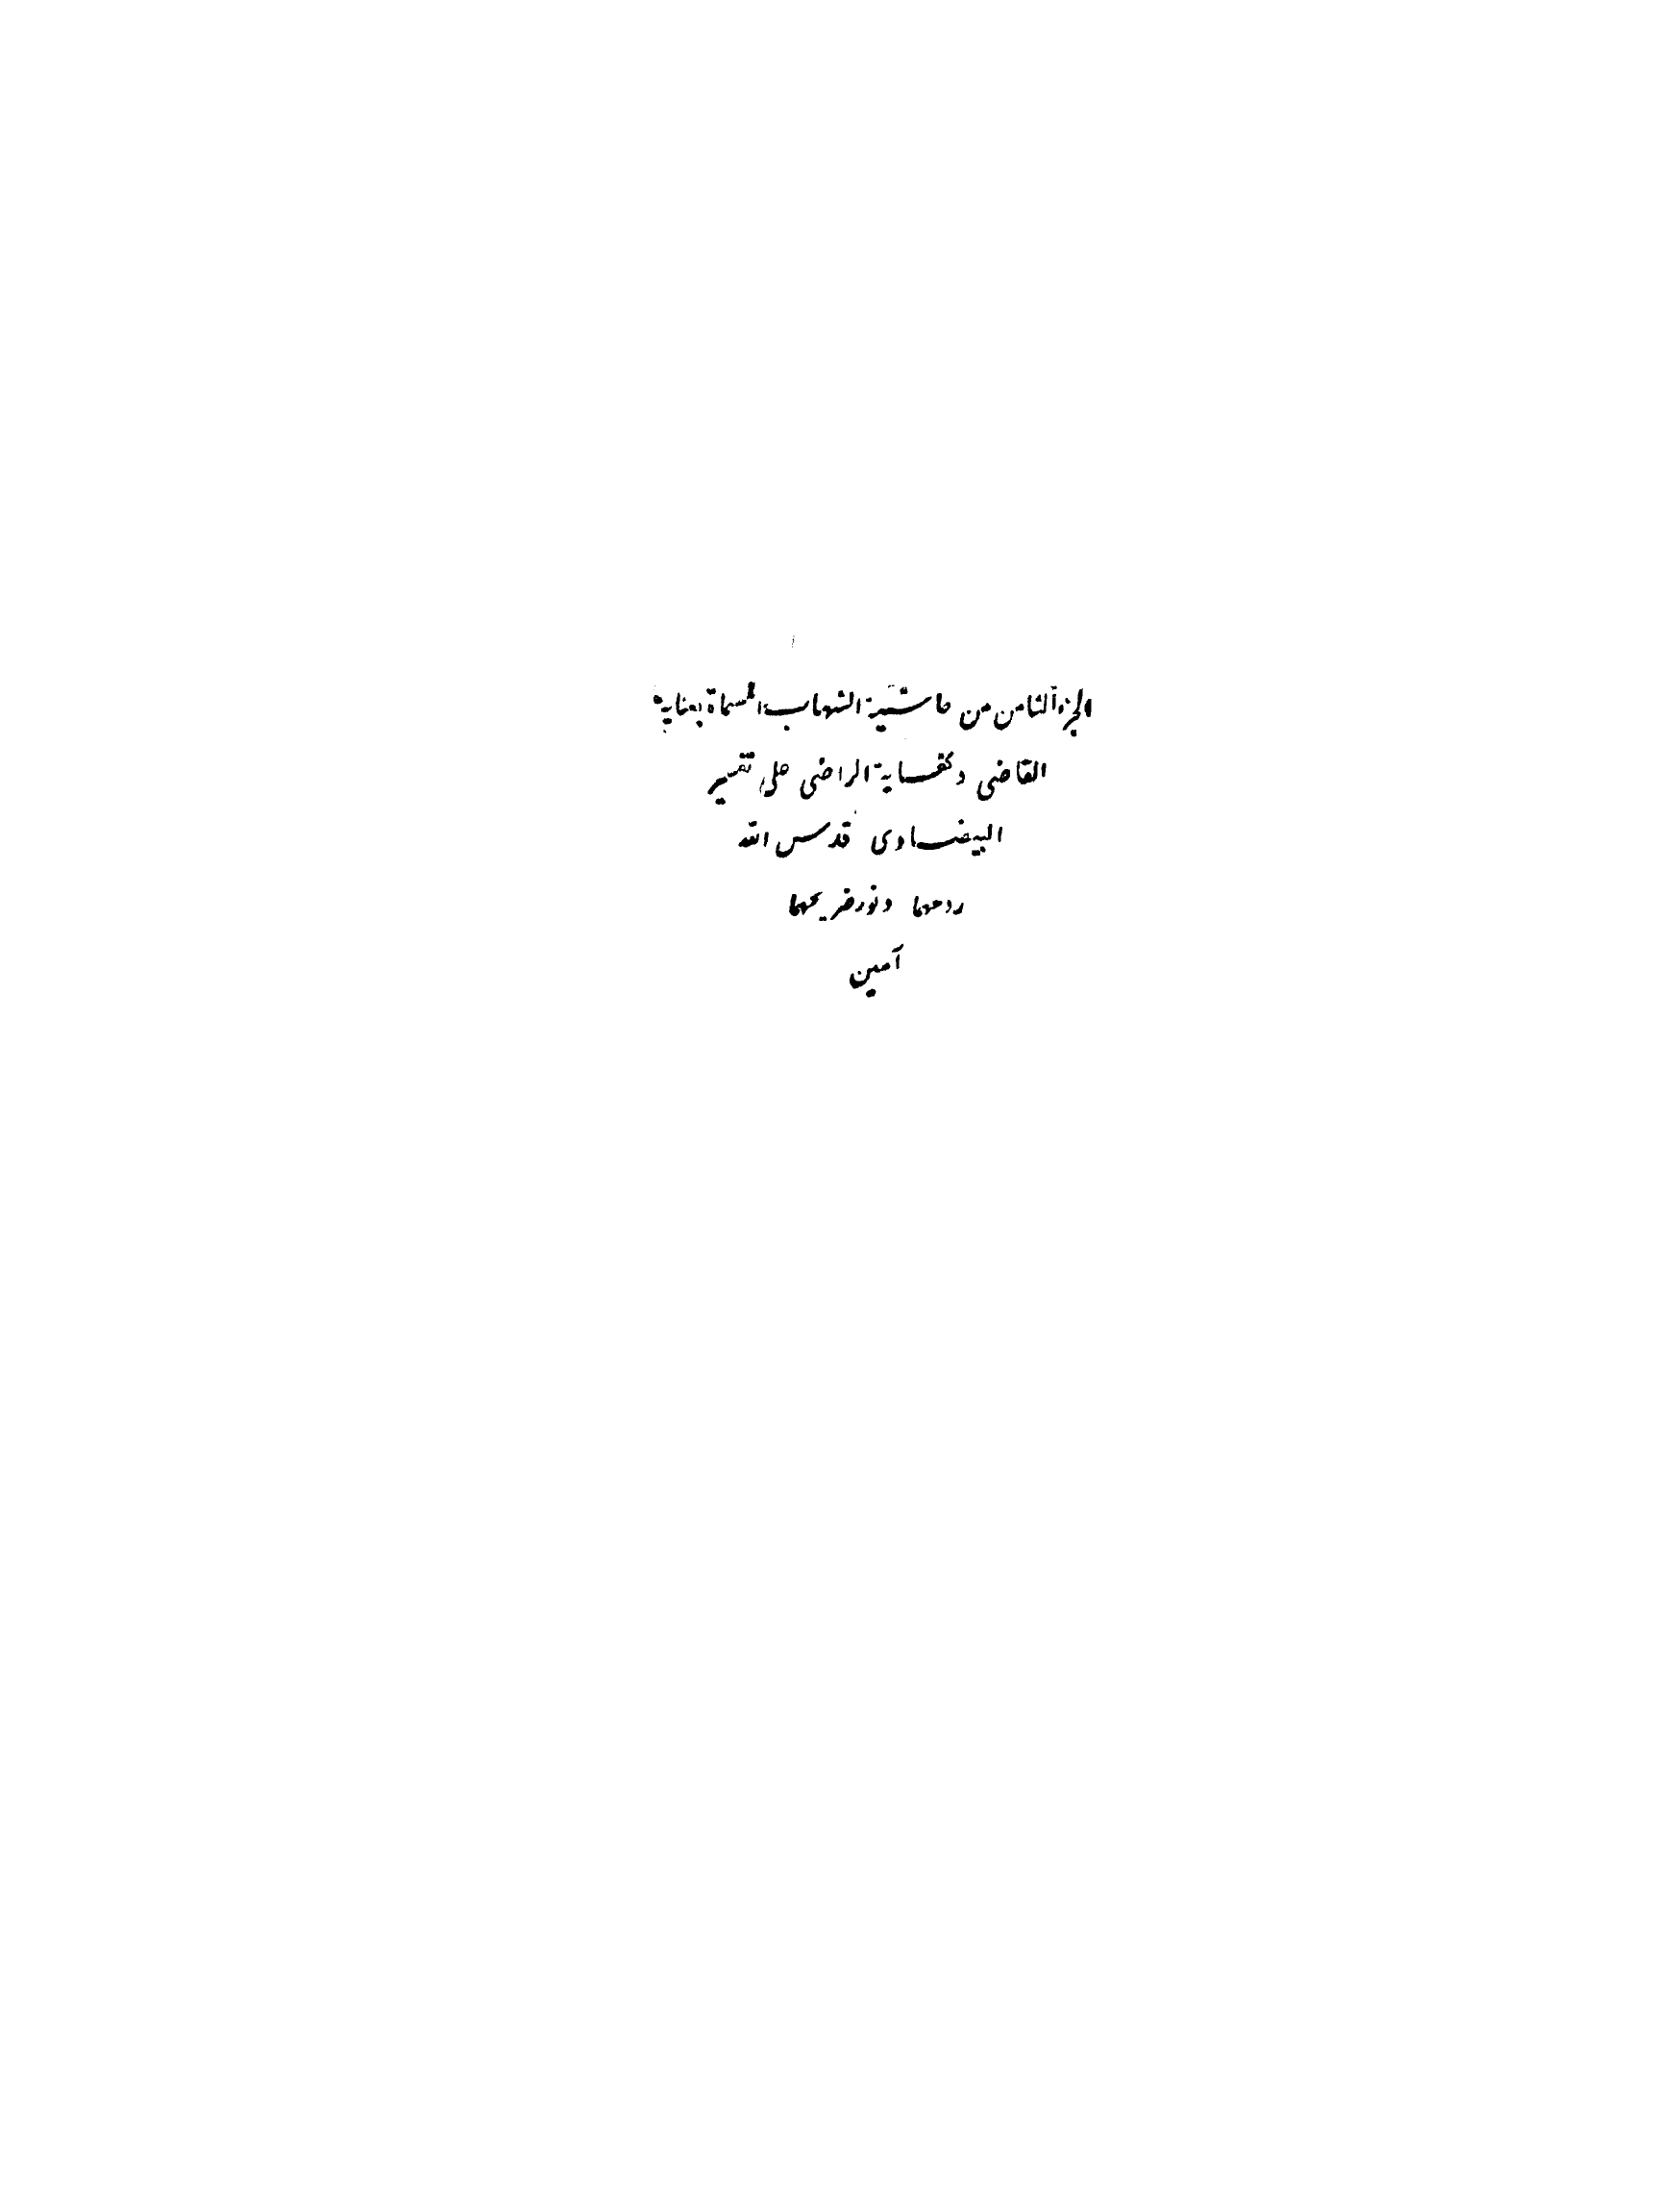 الجزء الثامن من حاشية الشهاب المسماة بعناية
القاضى وكفاية الراضى على تفسير
البيضاوى قدس الله
روحهما ونور ضريحهما
آمين